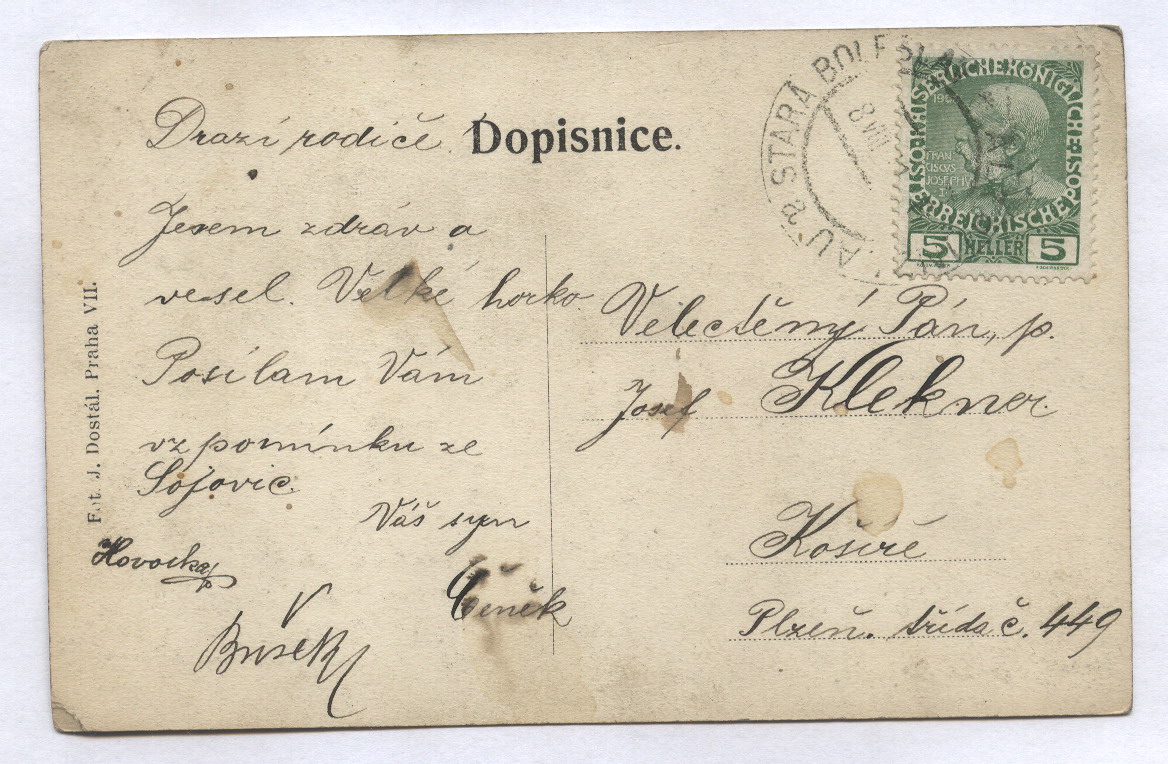 Drazí rodiče
Dopisnice.
Jesem zdráv a
vesel. Velké horko
Posílam Vám
vzpomínku ze
Sojovic.
Váš syn
Čeněk
Velectěný Pán, p.
Josef Klekner.
Košíře
Plzeň. třída č. 449
Fot. J. Dostál. Praha VII.
STARÁ BOLESLA
8 VIII
KAISERLICHE KÖNIGLICHE ÖSTERREICHISCHE POST
FRAN
CISCUS
JOSEPHV
I
5 HELLER 5